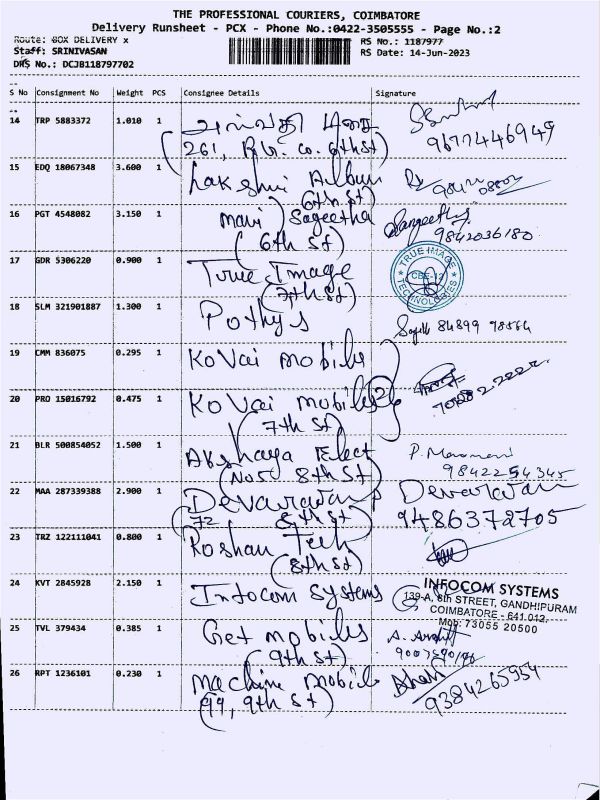 THE PROFESSIONAL COURIERS, COIMBATORE
Delivery Runsheet - PCX - Phone No.:0422-3505555 - Page No.:2
Route: BOX DELIVERY x
RS No.: 1187977
Staff: SRINIVASAN
RS Date: 14-Jun-2023
DRS No.: DCJB118797702
S No Consignment No Weight PCS Consignee Details Signature
14 TRP 5883372 1.010 1
9677446949
261, 6th St)
15 EDQ 18067348 3.600 1 Lakshmi Album
6th St)
16 PGT 4548082 3.150 1 Mari Sageetha Sangeetha
(6th St) 9842036180
17 GDR 5306220 0.900 1 True Image TRUE IMAGE TECHNOLOGIES CBE-12
(7th St)
18 SLM 321901887 1.300 1 Pothys
84899 98564
19 CMM 836075 0.295 1 Kovai mobile
20 PRO 15016792 0.475 1 Kovai mobiles 2
(7th St)
21 BLR 500854052 1.500 1 Akshaya Elect
(No 5 8th St) 9842254345
22 MAA 287339388 2.900 1 Devaravan Devaravan
(72 8th St) 9486372705
23 TRZ 122111041 0.800 1 Roshan Tech
(8th St)
24 KVT 2845928 2.150 1 Infocom Systems INFOCOM SYSTEMS
139-A, 8th STREET, GANDHIPURAM
COIMBATORE - 641 012.
Mob: 73055 20500
25 TVL 379434 0.385 1 Get mobiles
(9th St)
26 RPT 1236101 0.230 1 Machine mobile
(99, 9th St) 9384265954